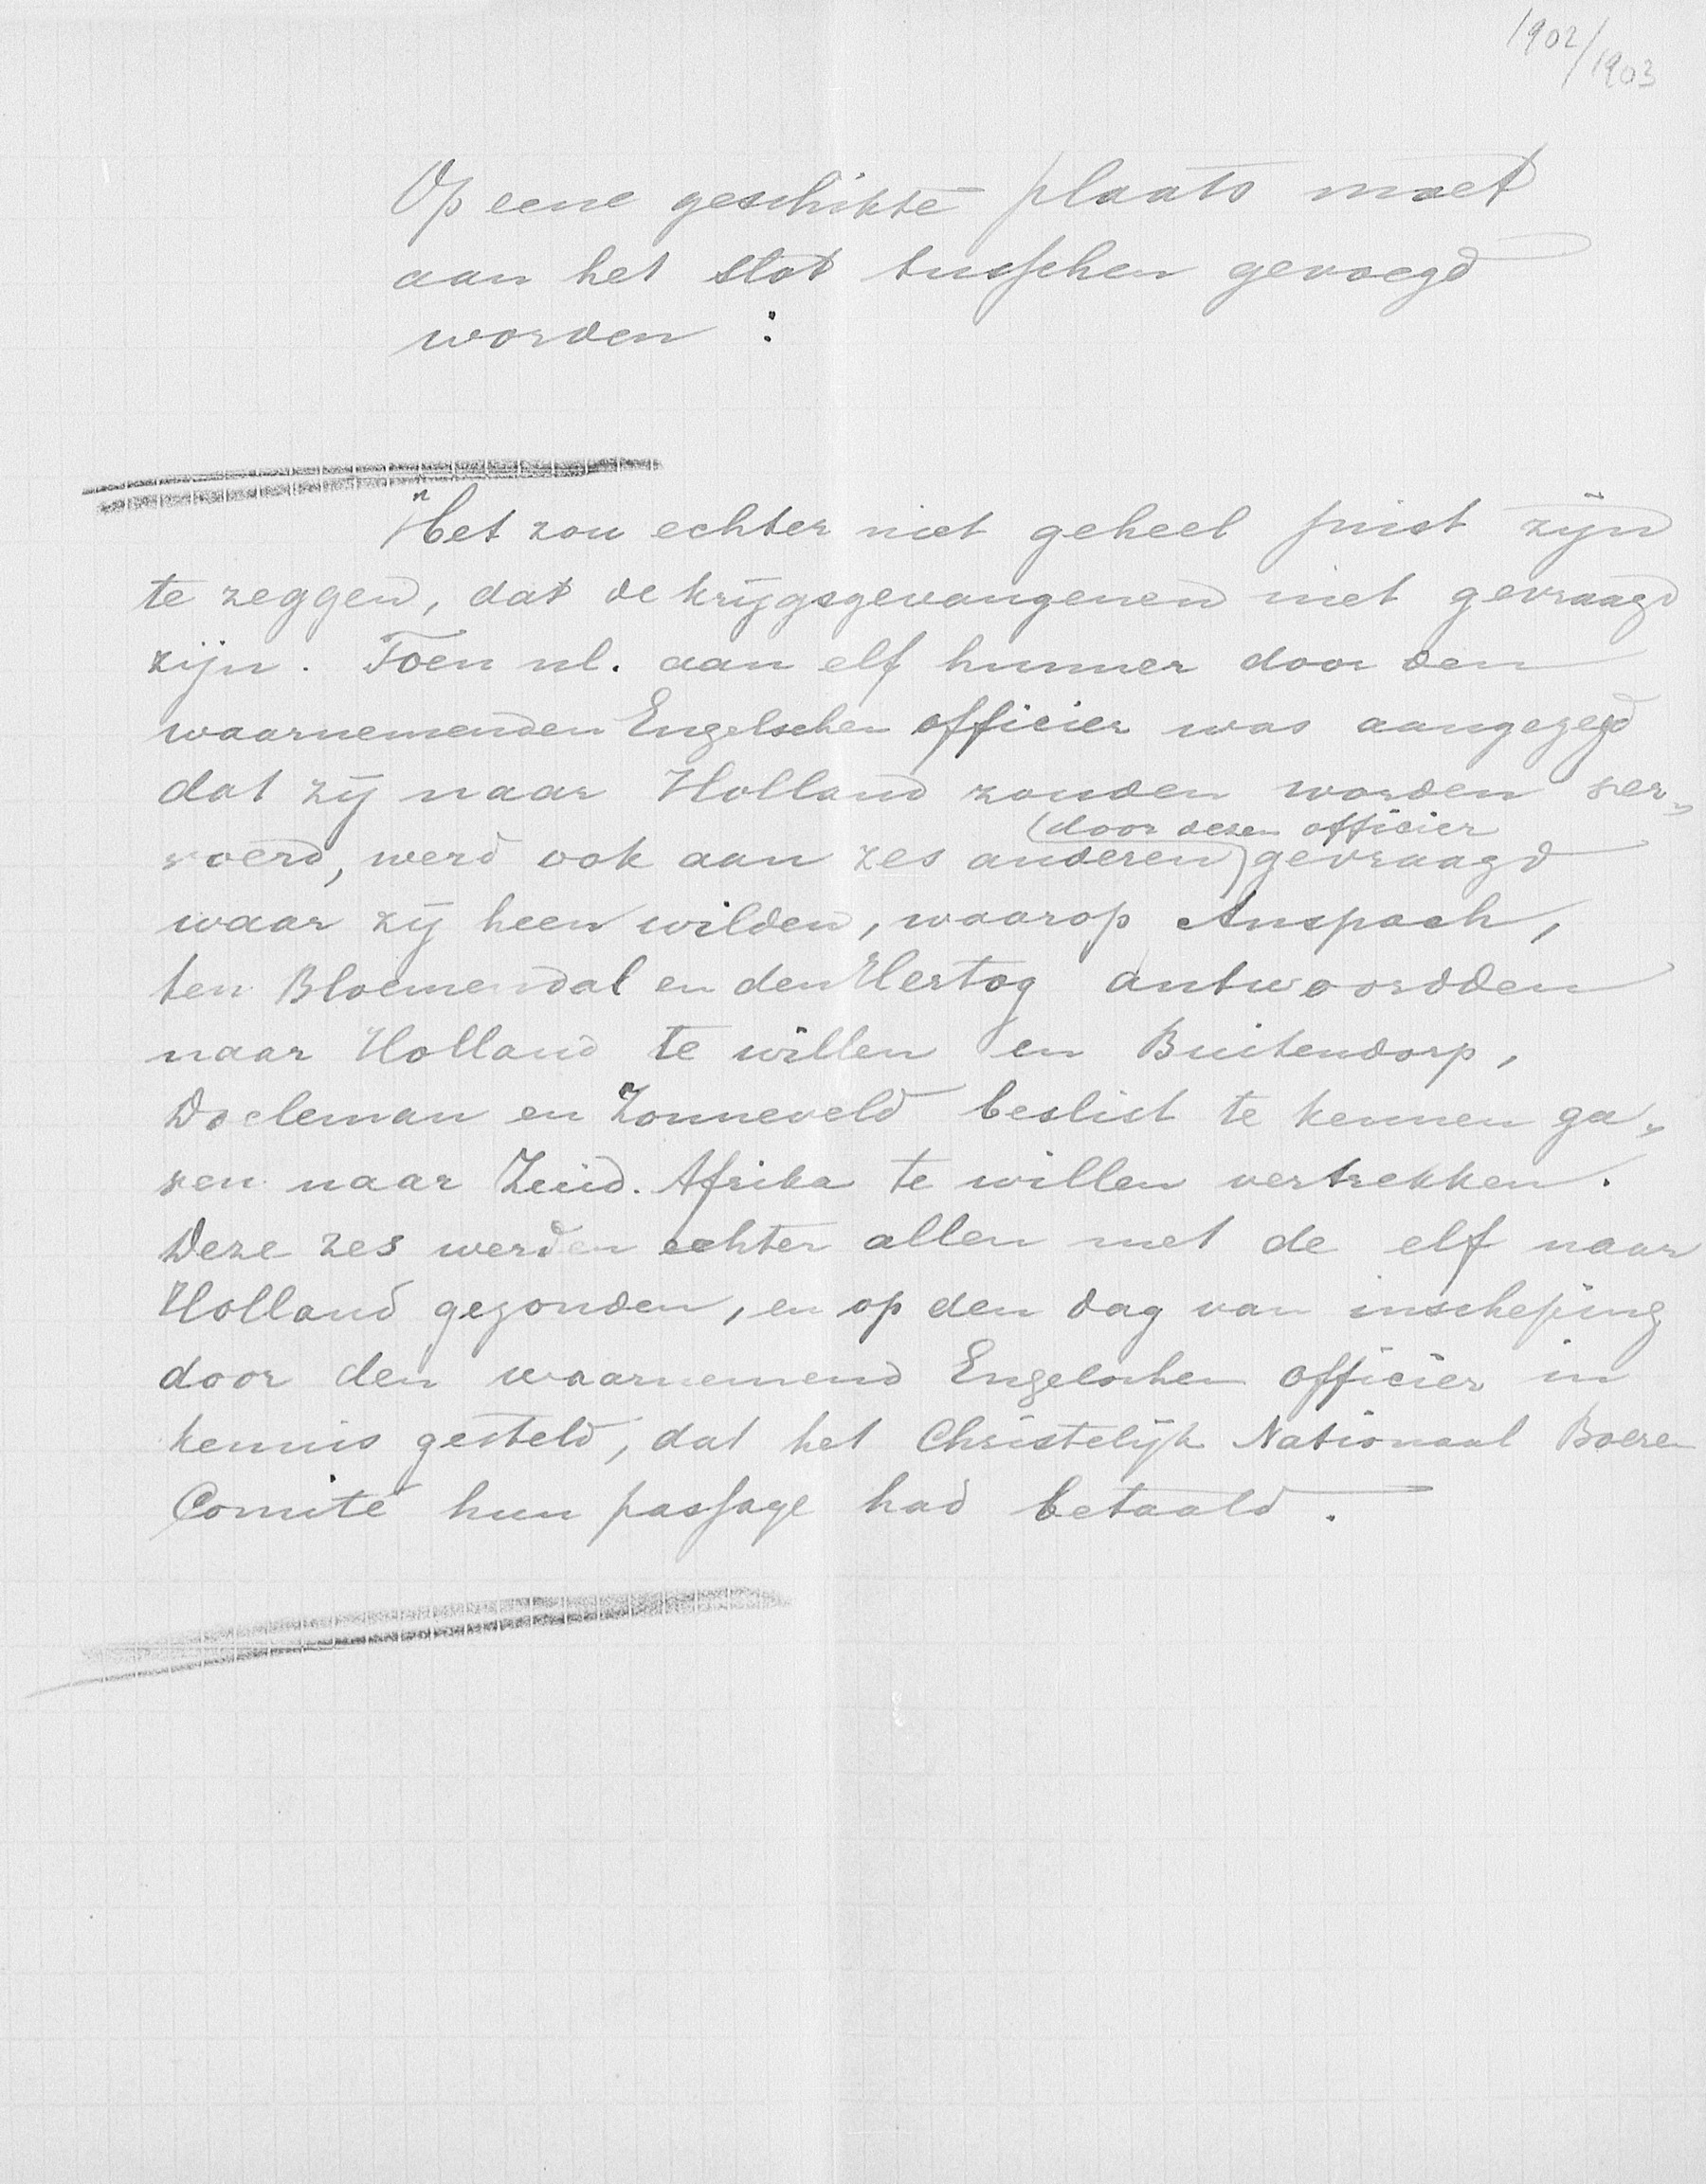 1902/1903
Op eene geschikte plaats moet
aan het slot tusschen gevoegd
worden :
"Het zou echter niet geheel juist zijn
te zeggen, dat de krijgsgevangenen niet gevraagd
zijn. Toen nl. aan elf hunner door den
waarnemenden Engelschen officier was aangezegd
dat zij naar Holland zouden worden ver„
(door dezen officier
voerd, werd ook aan zes anderen) gevraagd
waar zij heen wilden, waarop Anspach,
ten Bloemendal en den Hertog antwoordden
naar Holland te willen en Buitendorp,
Doeleman en Zonneveld beslist te kennen ga„
ven naar Zuid. Afrika te willen vertrekken.
Deze zes werden echter allen met de elf naar
Holland gezonden, en op den dag van inscheping
door den waarnemend Engelschen officier in
kennis gesteld, dat het Christelijk Nationaal Boeren
Comité hun passage had betaald.